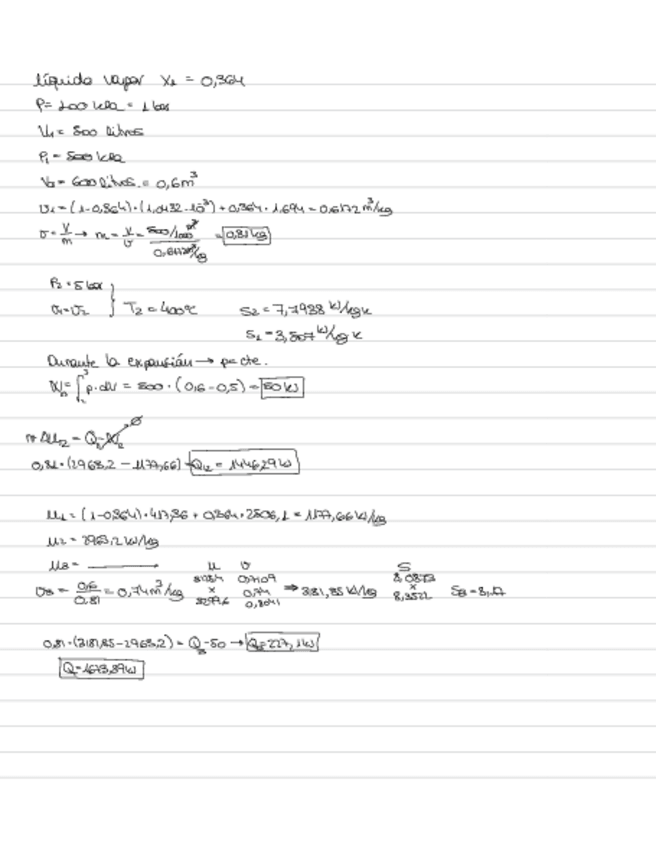 líquido vapor x₁ = 0,364
P = 100 kPa = 1 bar
V₁ = 500 litros
P₁ = 500 kPa
V₃ = 600 litros = 0,6 m³
v₁ = (1-0,364)·(1,0432·10³) + 0,364·1,694 = 0,6172 m³/kg
v = V/m → m = V/v = (500/1000 m³)/(0,6172 m³/kg) = 0,81 kg
P₂ = 5 bar
v₁ = v₂ } T₂ = 400ºC s₂ = 7,7938 kJ/kg K
s₁ = 3,507 kJ/kg K
Durante la expansión → p = cte.
W = ∫ p·dV = 500·(0,6-0,5) = 50 kJ
m Δu₁₂ = Q-W₁₂ ø
0,81·(2963,2 - 1177,66) = Q₁₂ = 1446,29 kJ
u₁ = (1-0,364)·417,36 + 0,364·2506,1 = 1177,66 kJ/kg
u₂ = 2963,2 kJ/kg
u₃ = → u v s
v₃ = 0,6/0,81 = 0,74 m³/kg x 0,7109 0,74 0,8041 ⇒ 3181,85 kJ/kg 8,0873 x 8,3522
0,81·(3181,85-2963,2) = Q-50 → Q = 227,1 kJ
Q = 1673,39 kJ